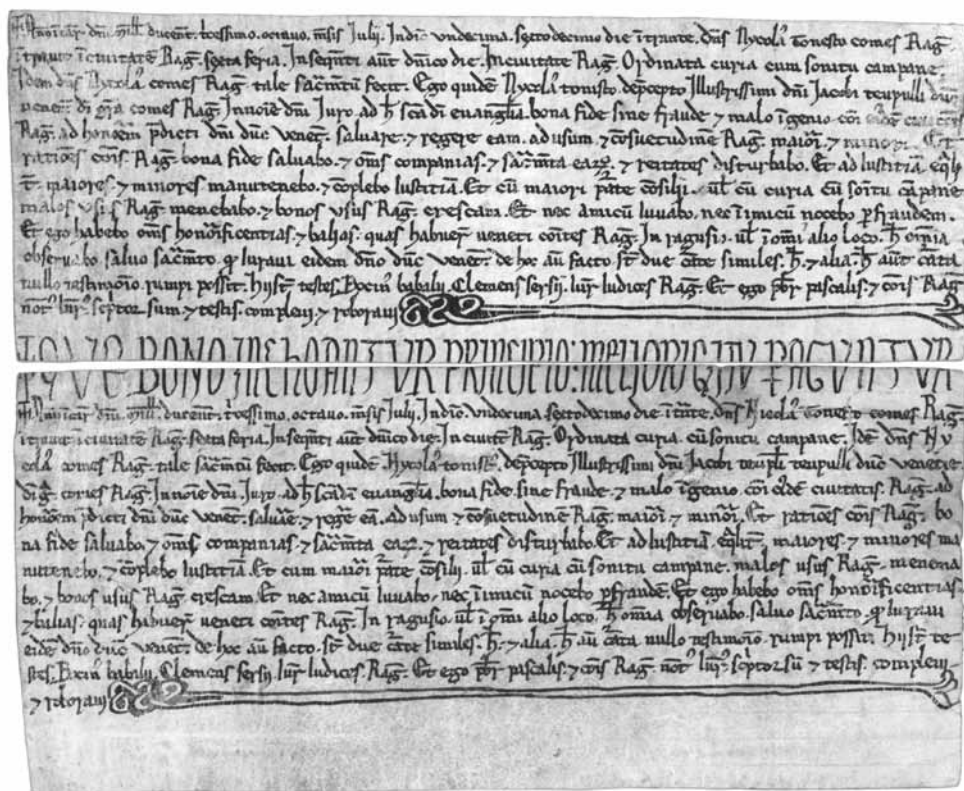 Anno īcar̄. dn̄i. mill. ducent. tͥcessimo. octauo. m̄sis Julij. Indic̄. vndecima. sexto decimo die ītrante. dn̄s Nycola᾽ tonesto comes Rag̃.
ītrauit ī ciuitate Rag̃. sexta feria. In seqn̄ti aut̄ dn̄ico die. In ciuitate Rag̃. Ordinata curia cum sonitu campane.
Idem dn̄s Nycola᾽ comes Rag̃. tale sac̄mtū fecit. Ego quidē Nycola᾽ tonisto. de p̄cepto Illustrissimi dn̄i Jacobi teupulli duc̄
venet̄. di gr̄a comes Rag̃. In no͞ie dn̄i Juro. ad h̄ sc̄a di euangl̄ia. bona fide sine fraude ⁊ malo īgenio. cōi
Rag̃. ad honōem p̄dicti dn̄i duc̄ venet̄. saluare. ⁊ regere eam. ad usum ⁊ cōsuetudinē Rag̃. maioȝ. ⁊ minoȝ. Et
ratiōes cōis Rag̃. bona fide saluabo. ⁊ om̄s companias. ⁊ sac̄mta eaꝝ. ⁊ reitates disturbabo. Et ad Iustitiā. eq̄li
t̄. maiores ⁊ minores manutenebo. ⁊ cōplebo Iustitiā. Et cū maiori p̄ate cōsilij. ul̄ cū curia cū sonitu cāpane
malos usus Rag̃. menebabo. ⁊ bonos vsus Rag̃. crescam. Et nec amicū Iuuabo. nec īimicū nocebo p̱ fraudem.
Et ego habebo om̄s honōificentias. ⁊ bahos. quas habuer̄ veneti cōites Rag̃. In ragusio. ul̄ ī om̄i alio loco. h̄ om̄ia
obseruabo. saluo sac̄mto. qͩ Iuraui eidem dn̄o duc̄ venet̄. de hoc aū facto. st̄ due c̄ate similes. h̄. ⁊ alia. h̄ aut̄ cata
nullo testimōio. rumpi possit. Hij st̄ testes. Bocin᾽ babalij. Clemens sersij. Iur̄ Iudices Rag̃. Et ego p̄br pascalis. ⁊ cōis Rag̃
not᾽ Iur᾽ sc̄ptor sum ⁊ testis. compleui. ⁊ roboraui
BONO INChOANTVR PRINCIPIO: MELIORI
Anno īcar̄. dn̄i. mill. ducent. tͥcessimo. octauo. m̄sis Julij. Indic̄. vndecima. sexto decimo die ītn̄te. dn̄s Nicola᾽ tonesto comes Rag̃.
ītrauit ī ciuitate Rag̃. sexta feria. In seqn̄ti aut̄ dn̄ico die. In ciuit̄e Rag̃. Ordinata curia. cū sonitu campane. Idē dn̄s Ny
cola᾽ comes Rag̃. tale sac̄mtū fecit. Ego quidē Nycola᾽ tonisto. de p̄cepto Illustrissimi dn̄i Jacobi teupl̄i teupulli duc̄ venetie.
di gr̄. comes Rag̃. In no͞ie dn̄i Juro. ad h̄ sc̄a di euangl̄ia. bona fide. sine fraude. ⁊ malo īgenio. cōi eiͩdē ciuitatis. Rag̃. ad
honōem p̄dicti dn̄i duc̄ venet̄. saluāe. ⁊ reḡe eā. ad usum ⁊ cōsuetudinē Rag̃. maioȝ. ⁊ minoȝ. Et ratiōes cōis Rag̃. bo
na fide saluabo. ⁊ om̄s companias. ⁊ sac̄mta eaꝝ. ⁊ reitates disturbabo. Et ad Iustitiā. eq̄lit̄. maiores. ⁊ minores ma
nutenebo. ⁊ cōplebo Iustitiā. Et cum maioȝ p̄ate cōsilij. ul̄ cū curia cū sonitu campane. malos usus Rag̃. menema
bo. ⁊ bonos usus Rag̃. crescam. Et nec amicū Iuuabo. nec īimicū nocebo p̱ fraudē. Et ego habebo om̄s honōificentias.
⁊ bulias. quas habuer̄ veneti cōites Rag̃. In ragusio. ul̄ ī om̄i alio loco. h̄ om̄ia obseruabo. saluo sac̄mto. qͩ Iuraui
eidē dn̄o duc̄ venet̄. de hoc aū facto. st̄ due c̄ate similes. h̄. ⁊ alia. h̄ aū c̄ata nullo testimōio. rumpi possit. Hij st̄ te
stes. Bocin᾽ babalij. Clemens sersij. Iur̄ Iudices. Rag̃. Et ego p̄br pascalis. ⁊ cōis Rag̃ not᾽ Iur᾽ sc̄ptor sū ⁊ testis. compleui.
⁊ roboraui